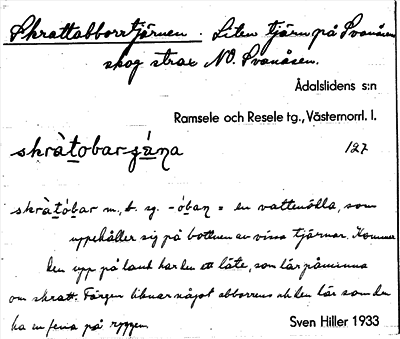 Skrattabborrtjärnen. Liten tjärn på Svanåsen
skog strax NO. Svanåsen.
Ådalslidens s:n
Ramsele och Resele tg., Västernorrl. l.
skràtobar-ɟä́ṇa 127
skràtóbar m., b. sg. -óban = en vattenödla, som
uppehåller sig på bottnen av vissa tjärnar. Kommer
den upp på land har den ett läte, som lär påminna
om skratt. Färgen liknar något abborrens och den lär som den
ha en fena på ryggen
Sven Hiller 1933